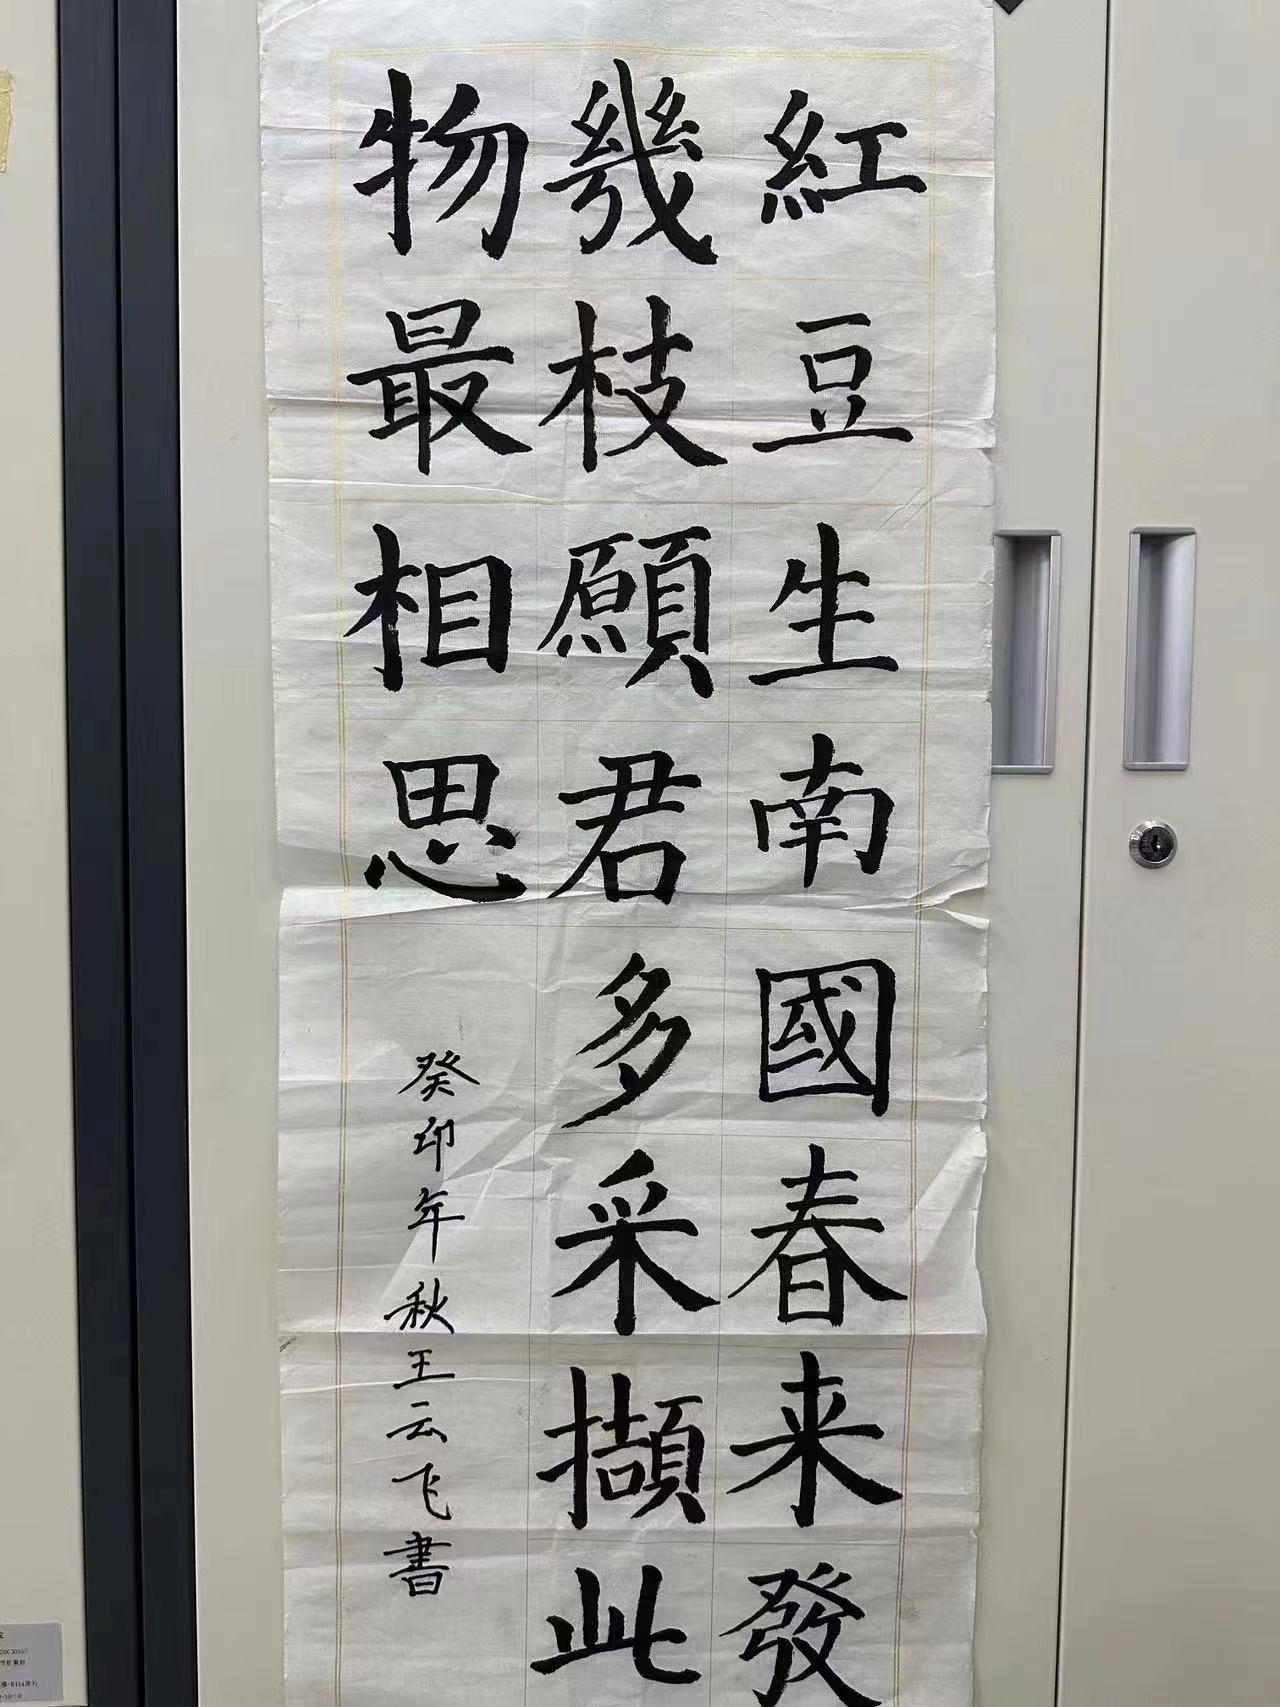 紅豆生南國春来發
幾枝願君多采擷此
物最相思
癸卯年秋王云飞書